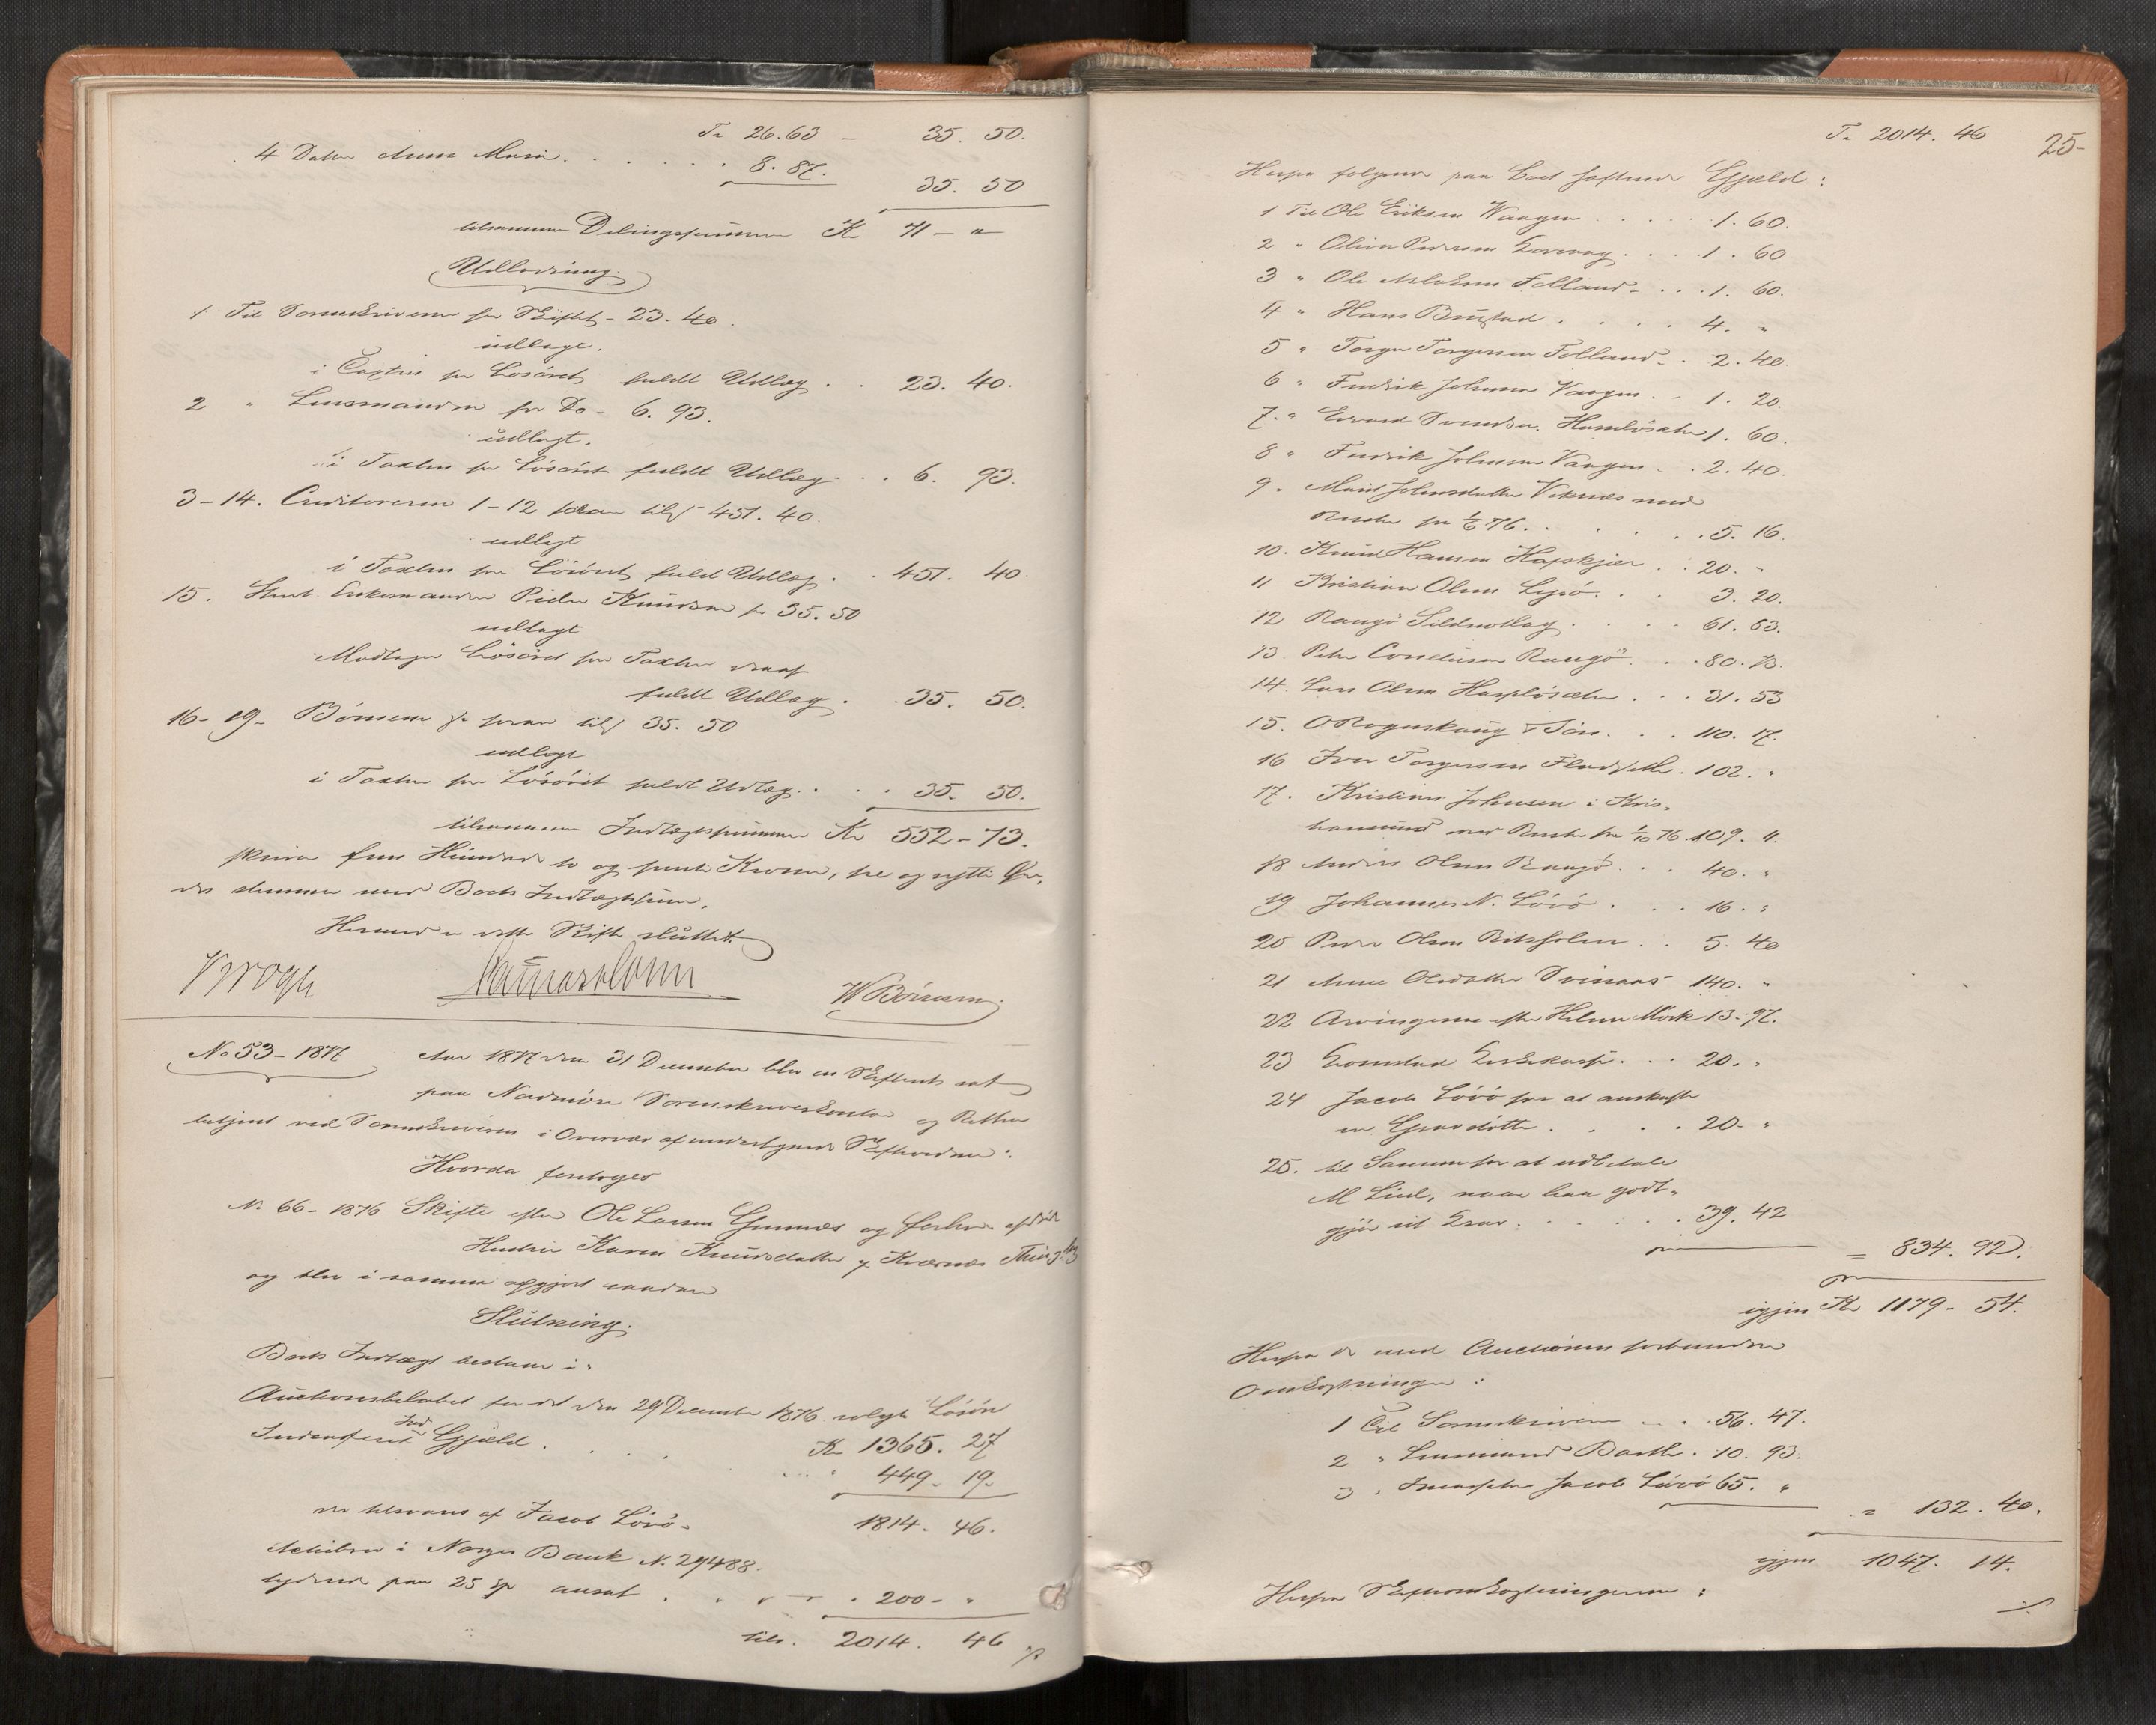 Tr 26.63 — 35. 50.
4 Datter Anne Maria . . . . . . 8. 87. 35. 50
tilsammen Delingssummen Kr 71 – "
Udlodning.
1 Til Sorenskriveren for Skiftet – 23. 40.
udlagt.
i Taxten for Løsøret fuldt Udlæg . . 23. 40.
2 " Lensmanden for Do – 6. 93.
udlagt.
i Taxten for Løsøret fuldt Udlæg . . 6. 93.
3–14. Creditorerne 1–12 foran tils 451. 40.
udlagt
i Taxten for Løsøret fuldt Udlæg . . 451. 40.
15. Enkemanden Peder Knudsen for 35. 50
udlagt
Modtager Løsøret for Taxten deraf
fuldt Udlæg . . 35. 50.
16–19– Børnene foran tils 35. 50
udlagt
i Taxten for Løsøret fuldt Udlæg . . . 35. 50.
tilsammen Indtægtssummen Kr 552–73.
skriver fem Hundrede to og femti Kroner, tre og sytti Øre,
der stemmer med Boets Indtægtssum.
Hermed er dette Skifte sluttet.
Krogh
W Børresen
No 53–1877 Aar 1877 den 31 December blev en Skifteret sat
paa Nordmøre Sorenskriverkontor og Retten
betjent ved Sorenskriveren i Overvær af undertegnede Skiftevidner:
Hvorda foretoges
No 66–1876 Skifte efter Ole Larsen Gunnes og forhen afdøde
Hustru Karen Knudsdatter af Kvernes Thinglag
og blev i samme afgjort saadan
Slutning.
Boets Indtægt bestaar i:
Auctionsbeløbet for det den 29 December 1876 solgte Løsøre
Kr 1365. 27
Indenferet Ind Gjæld . . . . . . " 449. 19.
der tilsvares af Jacob Løvø – 1814. 46.
Actie i Norges Bank No 29488.
lydende paa 25 Sp ansat . . . . . 200 – "
tils. 2014. 46
Tr 2014. 46
25–
Herfra følgende paa Boet hæftende Gjæld:
1 Til Ole Eriksen Waagen . . . . . 1. 60.
2 " Oliver Pedersen . . . . 1. 60
3 " Ole Aslaksen Folland – . . . 1. 60.
4 " Hans Brustad . . . . 4. "
5 " Torger Torgersen Folland – . 2. 40.
6 " Fredrik Johnsen Vaagen . . 1. 20.
7. " Edvard Svendsen 1. 60.
8 " Fredrik Johnsen Vaagen . . 2. 40.
9. Marit Johnsdatter Veknes med
Renter fra 1/6 76. . . . . . 5. 16.
10. Knud Hansen Hafskjær . . 20. "
11 Kristian Olsen . . . 3. 20.
12 Rangø Sildnotlag . . . . 61. 83.
13. Peter Corneliusen Rangø . . . 80. 73.
14. Lars Olsen . . . 31. 53
15. O Rognskaug & Søn . . . 110. 17.
16 Iver Torgersen . 102. "
17. Kristian Johnsen i Kris-
tiansund med Renter fra 1/10 76. 109. 11.
18 Anders Olsen Rangø . . . 40. "
19 Johannes N. Løvø . . . 16. "
20 Peder Olsen . . 5. 40
21 Anne Olsdatter 140. "
22 Arvingerne efter Helene Mork 13. 97.
23 . . . 20. "
24 Jacob Løvø for at anskaffe
en Gravstøtte . . . . . 20. "
25. til Samme for at udbetale
M Lied, naar han godt-
gjør sit Krav . . . . . . 39. 42
= 834. 92.
igjen Kr 1179 – 54.
Herfra de med Auctionen forbundne
Omkostninger:
1 Til Sorenskriveren . . . 56. 47.
2 " Lensmand Barth . 10. 93.
3 " Jacob Løvø 65. "
= 132. 40.
igjen 1047. 14.
Herfra Skifteomkostningerne: